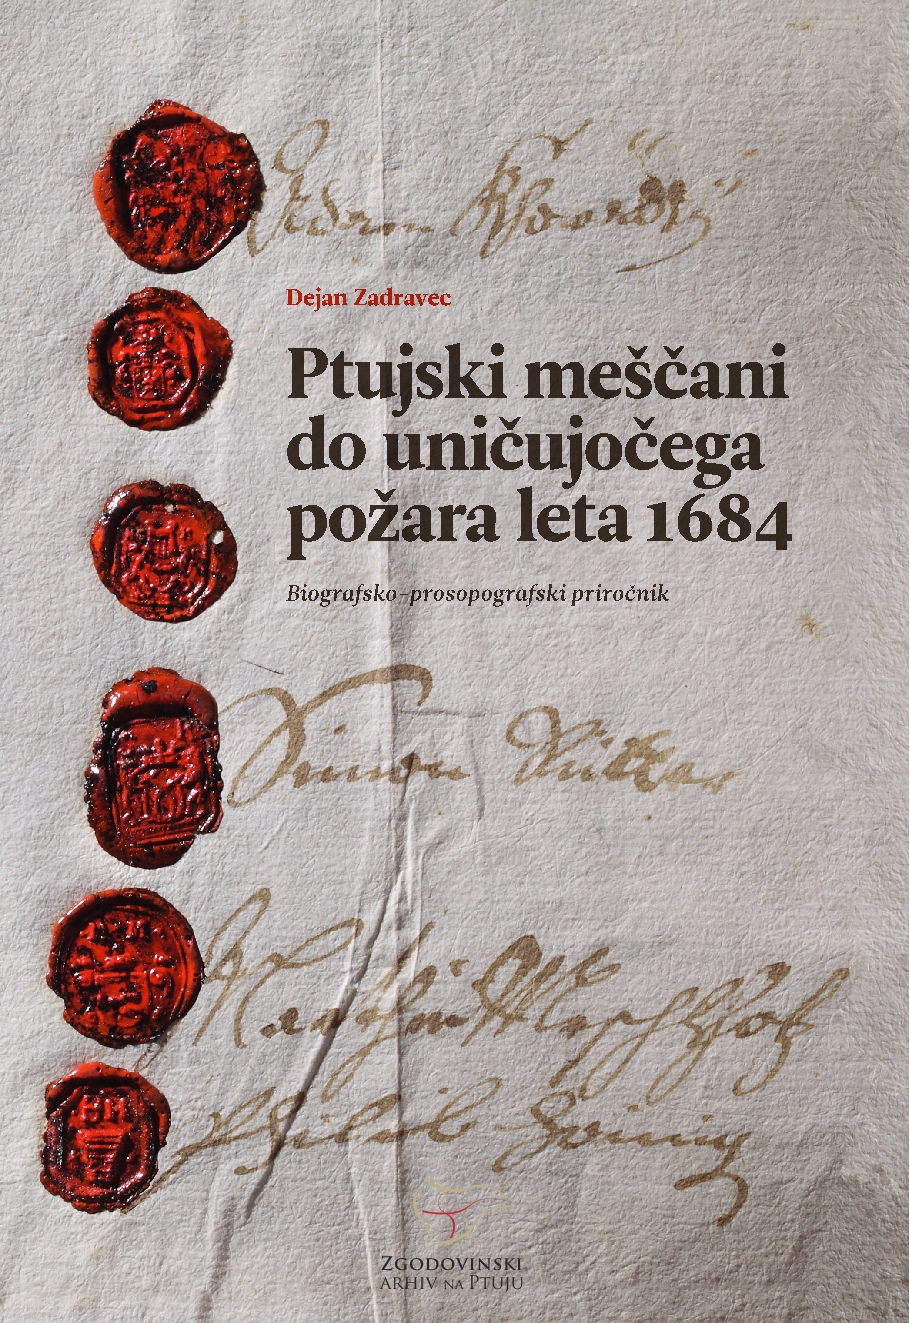 Dejan Zadravec
Ptujski meščani
do uničujočega
požara leta 1684
Biografsko-prosopografski priročnik
Simon
Philib
ZGODOVINSKI
ARHIV NA PTUJU